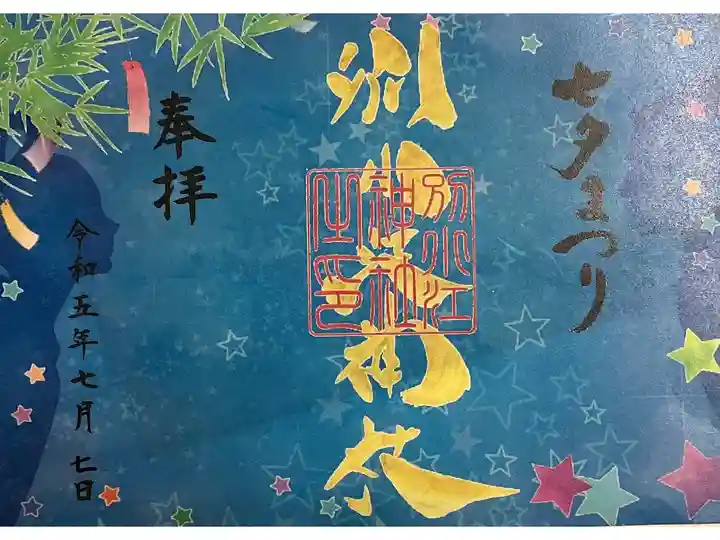 七夕まつり
別小江神社
別小江
神社
之印
奉拝
令和五年七月七日